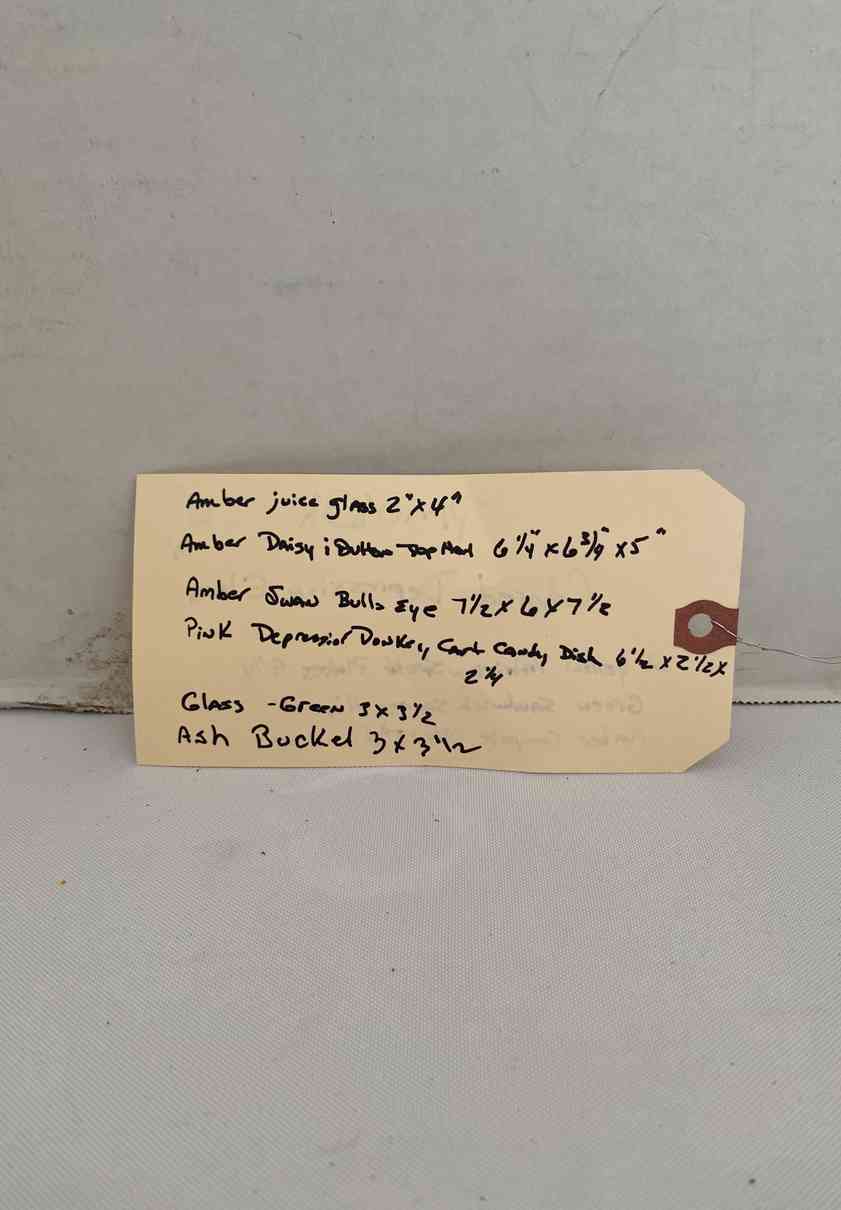 Amber juice glass 2" x 4"
Amber Daisy & Button Top Hat 6 1/4" x 6 3/4" x 5"
Amber Swan Bulls Eye 7 1/2 x 6 x 7 1/2
Pink Depression Donkey Cart Candy Dish 6 1/2 x 2 1/2 x
2 1/4
Glass - Green 3 x 3 1/2
Ash Bucket 3 x 3 1/2